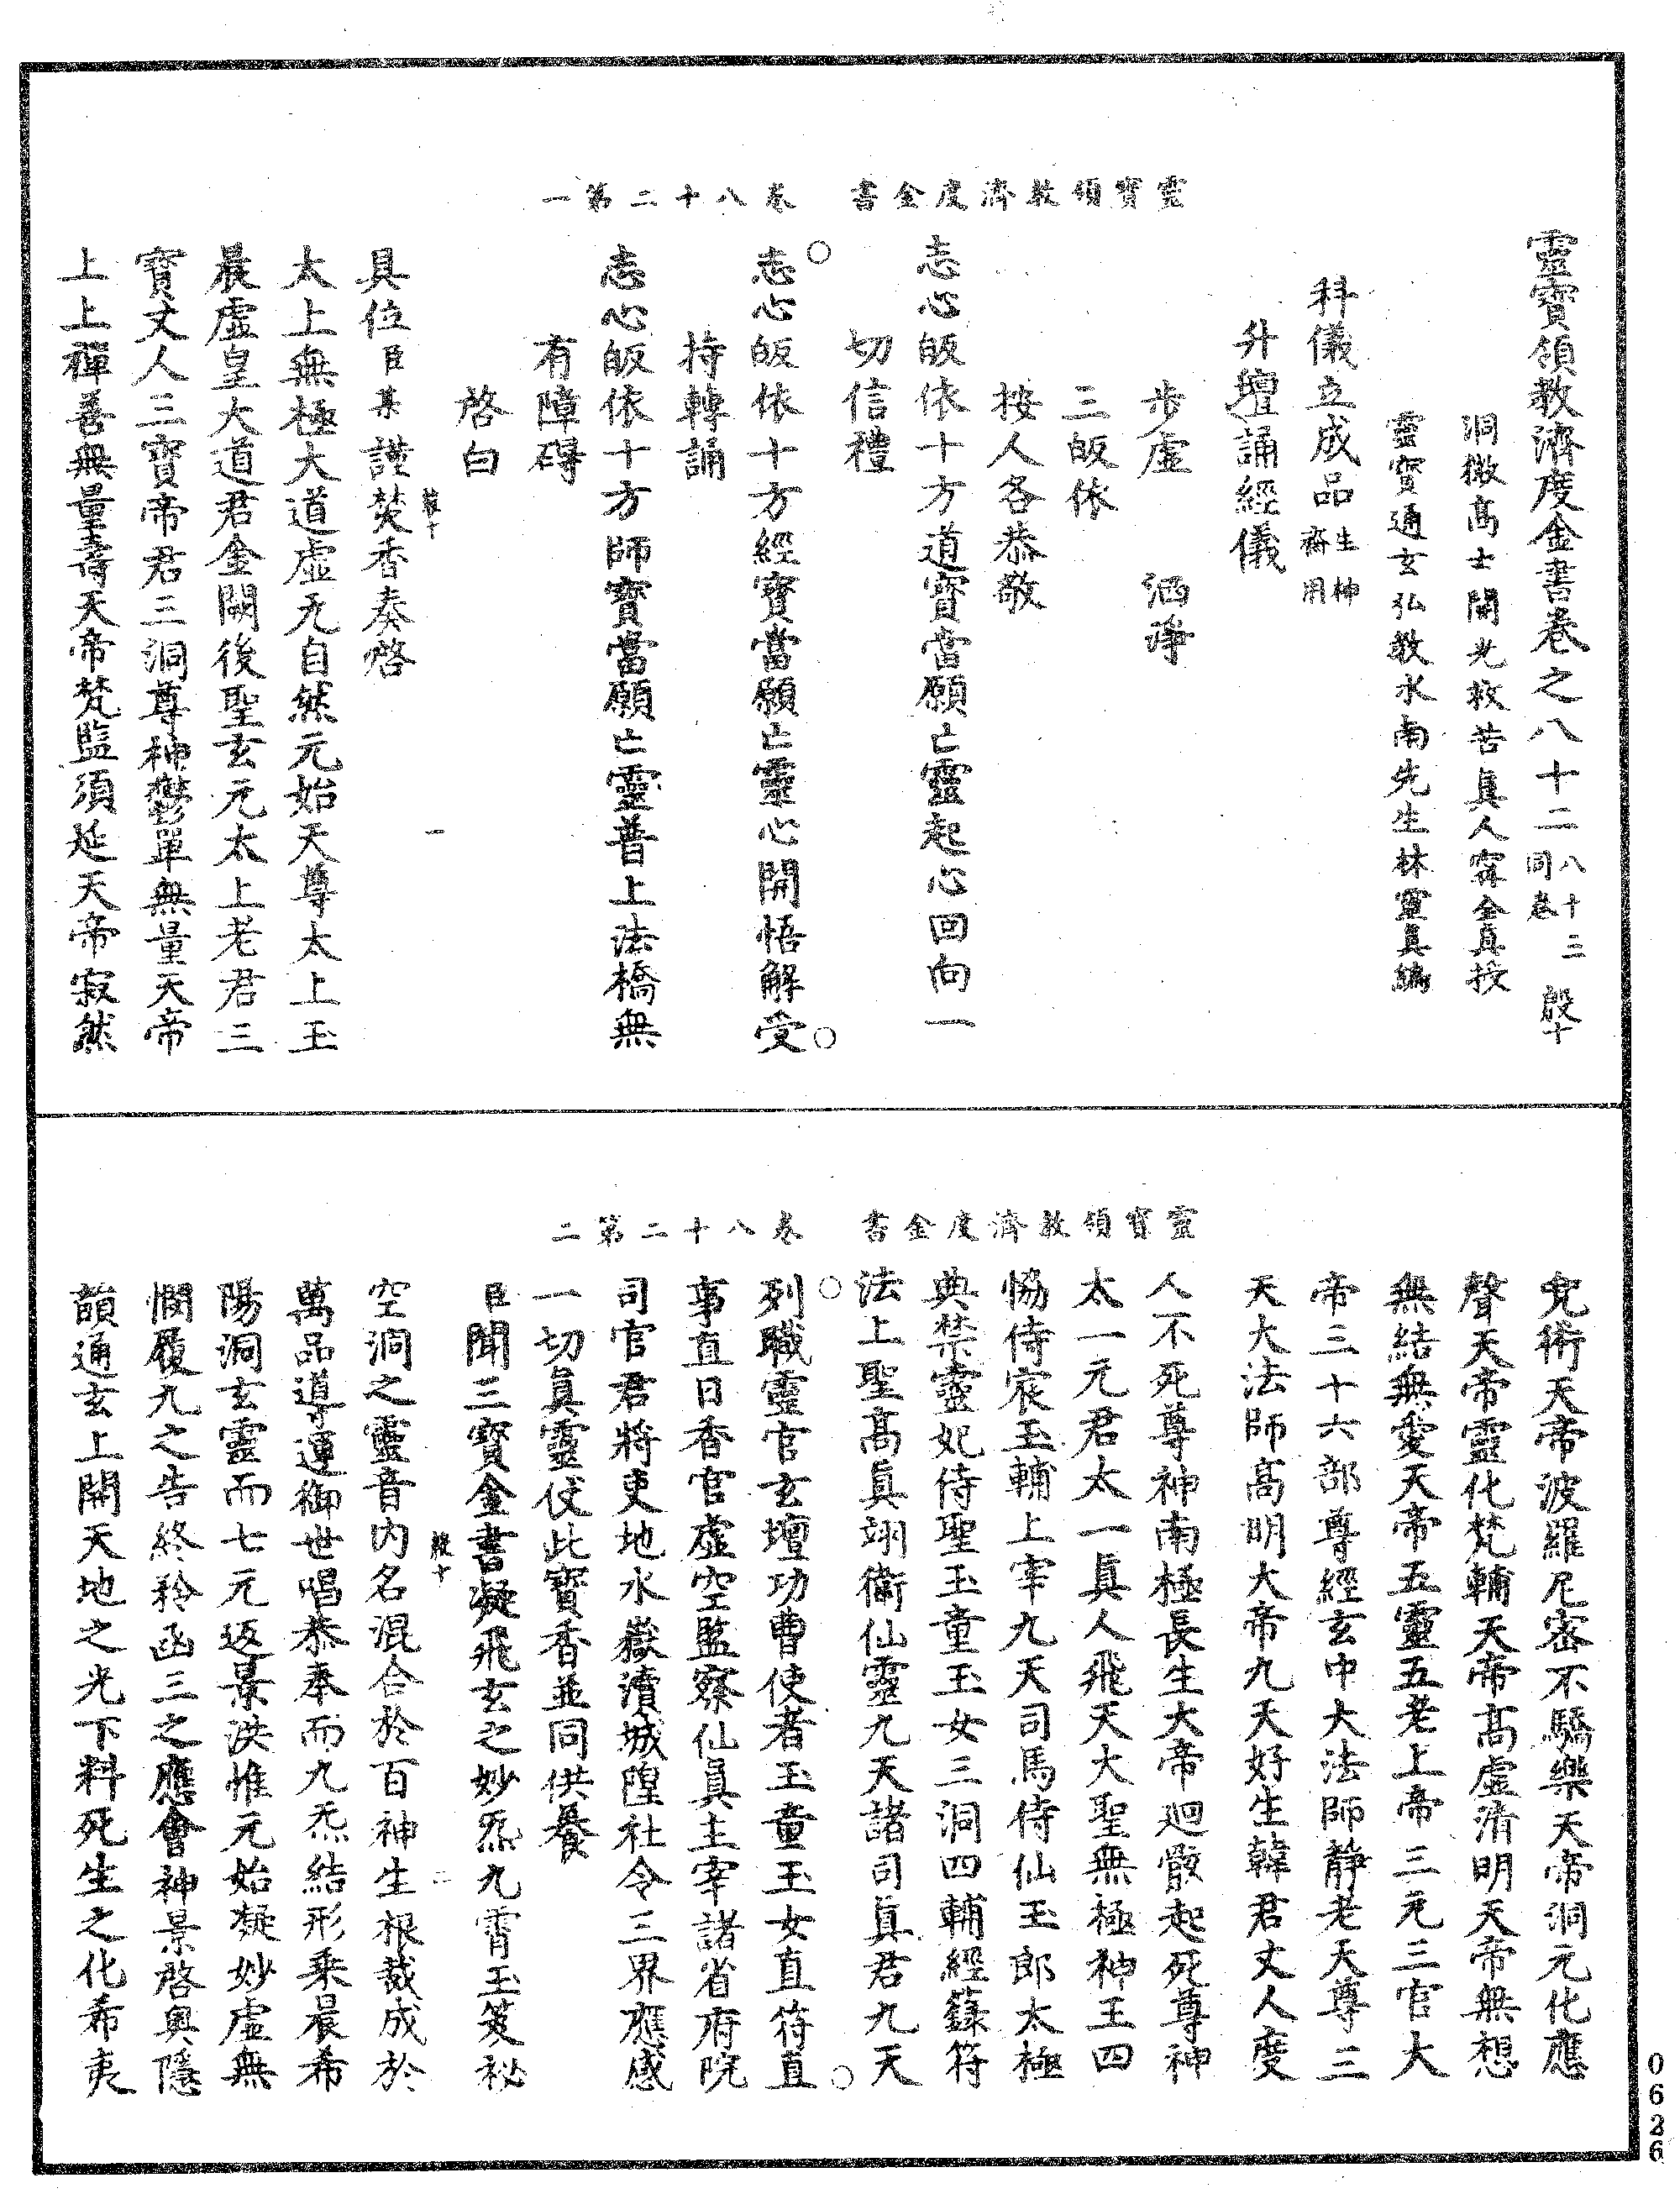 靈寶領教濟度金書　卷八十二第一
靈寶領教濟度金書卷之八十二八十三同卷　殷十
洞微高士開光救苦眞人甯全真授
靈寶通玄弘教水南先生林靈眞編
科儀立成品生神齋用
升壇誦經儀
步虛　洒淨
三皈依
按人各恭敬
志心皈依十方道寶當願亡靈起心回向一
切信禮
志心皈依十方經寶當願亡靈心開悟解受
持轉誦
志心皈依十方師寶當願亡靈普上法橋無
有障碍
啓白
殷十　一
具位臣某謹焚香奏啓
太上無極大道虛无自然元始天尊太上玉
晨虛皇大道君金闕後聖玄元太上老君三
寶丈人三寶帝君三洞尊神鬱單無量天帝
上上禪善無量壽天帝梵監須延天帝寂然
靈寶領教濟度金書　卷八十二第二
兜術天帝波羅尼密不驕樂天帝洞元化應
聲天帝靈化梵輔天帝高虛清明天帝無想
無結無愛天帝五靈五老上帝三元三官大
帝三十六部尊經玄中大法師靜老天尊三
天大法師高明大帝九天好生韓君丈人度
人不死尊神南極長生大帝迴骸起死尊神
太一元君太一真人飛天大聖無極神王四
恊侍宸玉輔上宰九天司馬侍仙玉郎太極
典禁靈妃侍聖玉童玉女三洞四輔經籙符
法上聖高眞翊衞仙靈九天諸司真君九天
列職靈官玄壇功曹使者玉童玉女直符直
事直日香官虛空監察仙眞主宰諸省府院
司官君將吏地水嶽瀆城隍社令三界應感
一切眞靈伏此寶香並同供養
臣聞三寶金書凝飛玄之妙炁九霄玉笈祕
殷十　二
空洞之靈音内名混合於百神生根裁成於
萬品導運御世唱恭奉而九炁結形乘晨希
陽洞玄靈而七元返景泱惟元始凝妙虛無
憫履九之告終矜函三之應會神景啓奧隱
韻通玄上開天地之光下料死生之化希夷
0626